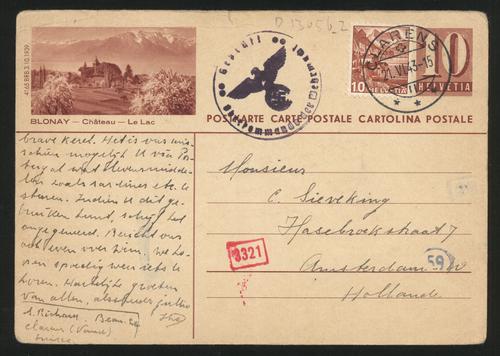 D 1305b_2
41.65 BRB 3.10.1939
BLONAY — Château — Le Lac
Geprüft
Oberkommando der Wehrmacht
CLARENS
21.VI.43-15
10 HELVETIA
10
HELVETIA
POSTKARTE CARTE POSTALE CARTOLINA POSTALE
brave kerel. Het is van
mogelijk U van
al wat levensmidde-
len zoals sardines etc. te
sturen. Indien U dit ge-
bruiken kunt, schrijf het
omgegaand. Bericht ons
ook even over We ho-
pen spoedig weer iets te
horen. Hartelijke groeten
van allen,
A. Richard. Beau
Clarens (Vaud)
Suisse
Monsieur
C. Sieveking
Hasebroekstraat 7
Amsterdam. W
Hollande
3321
59